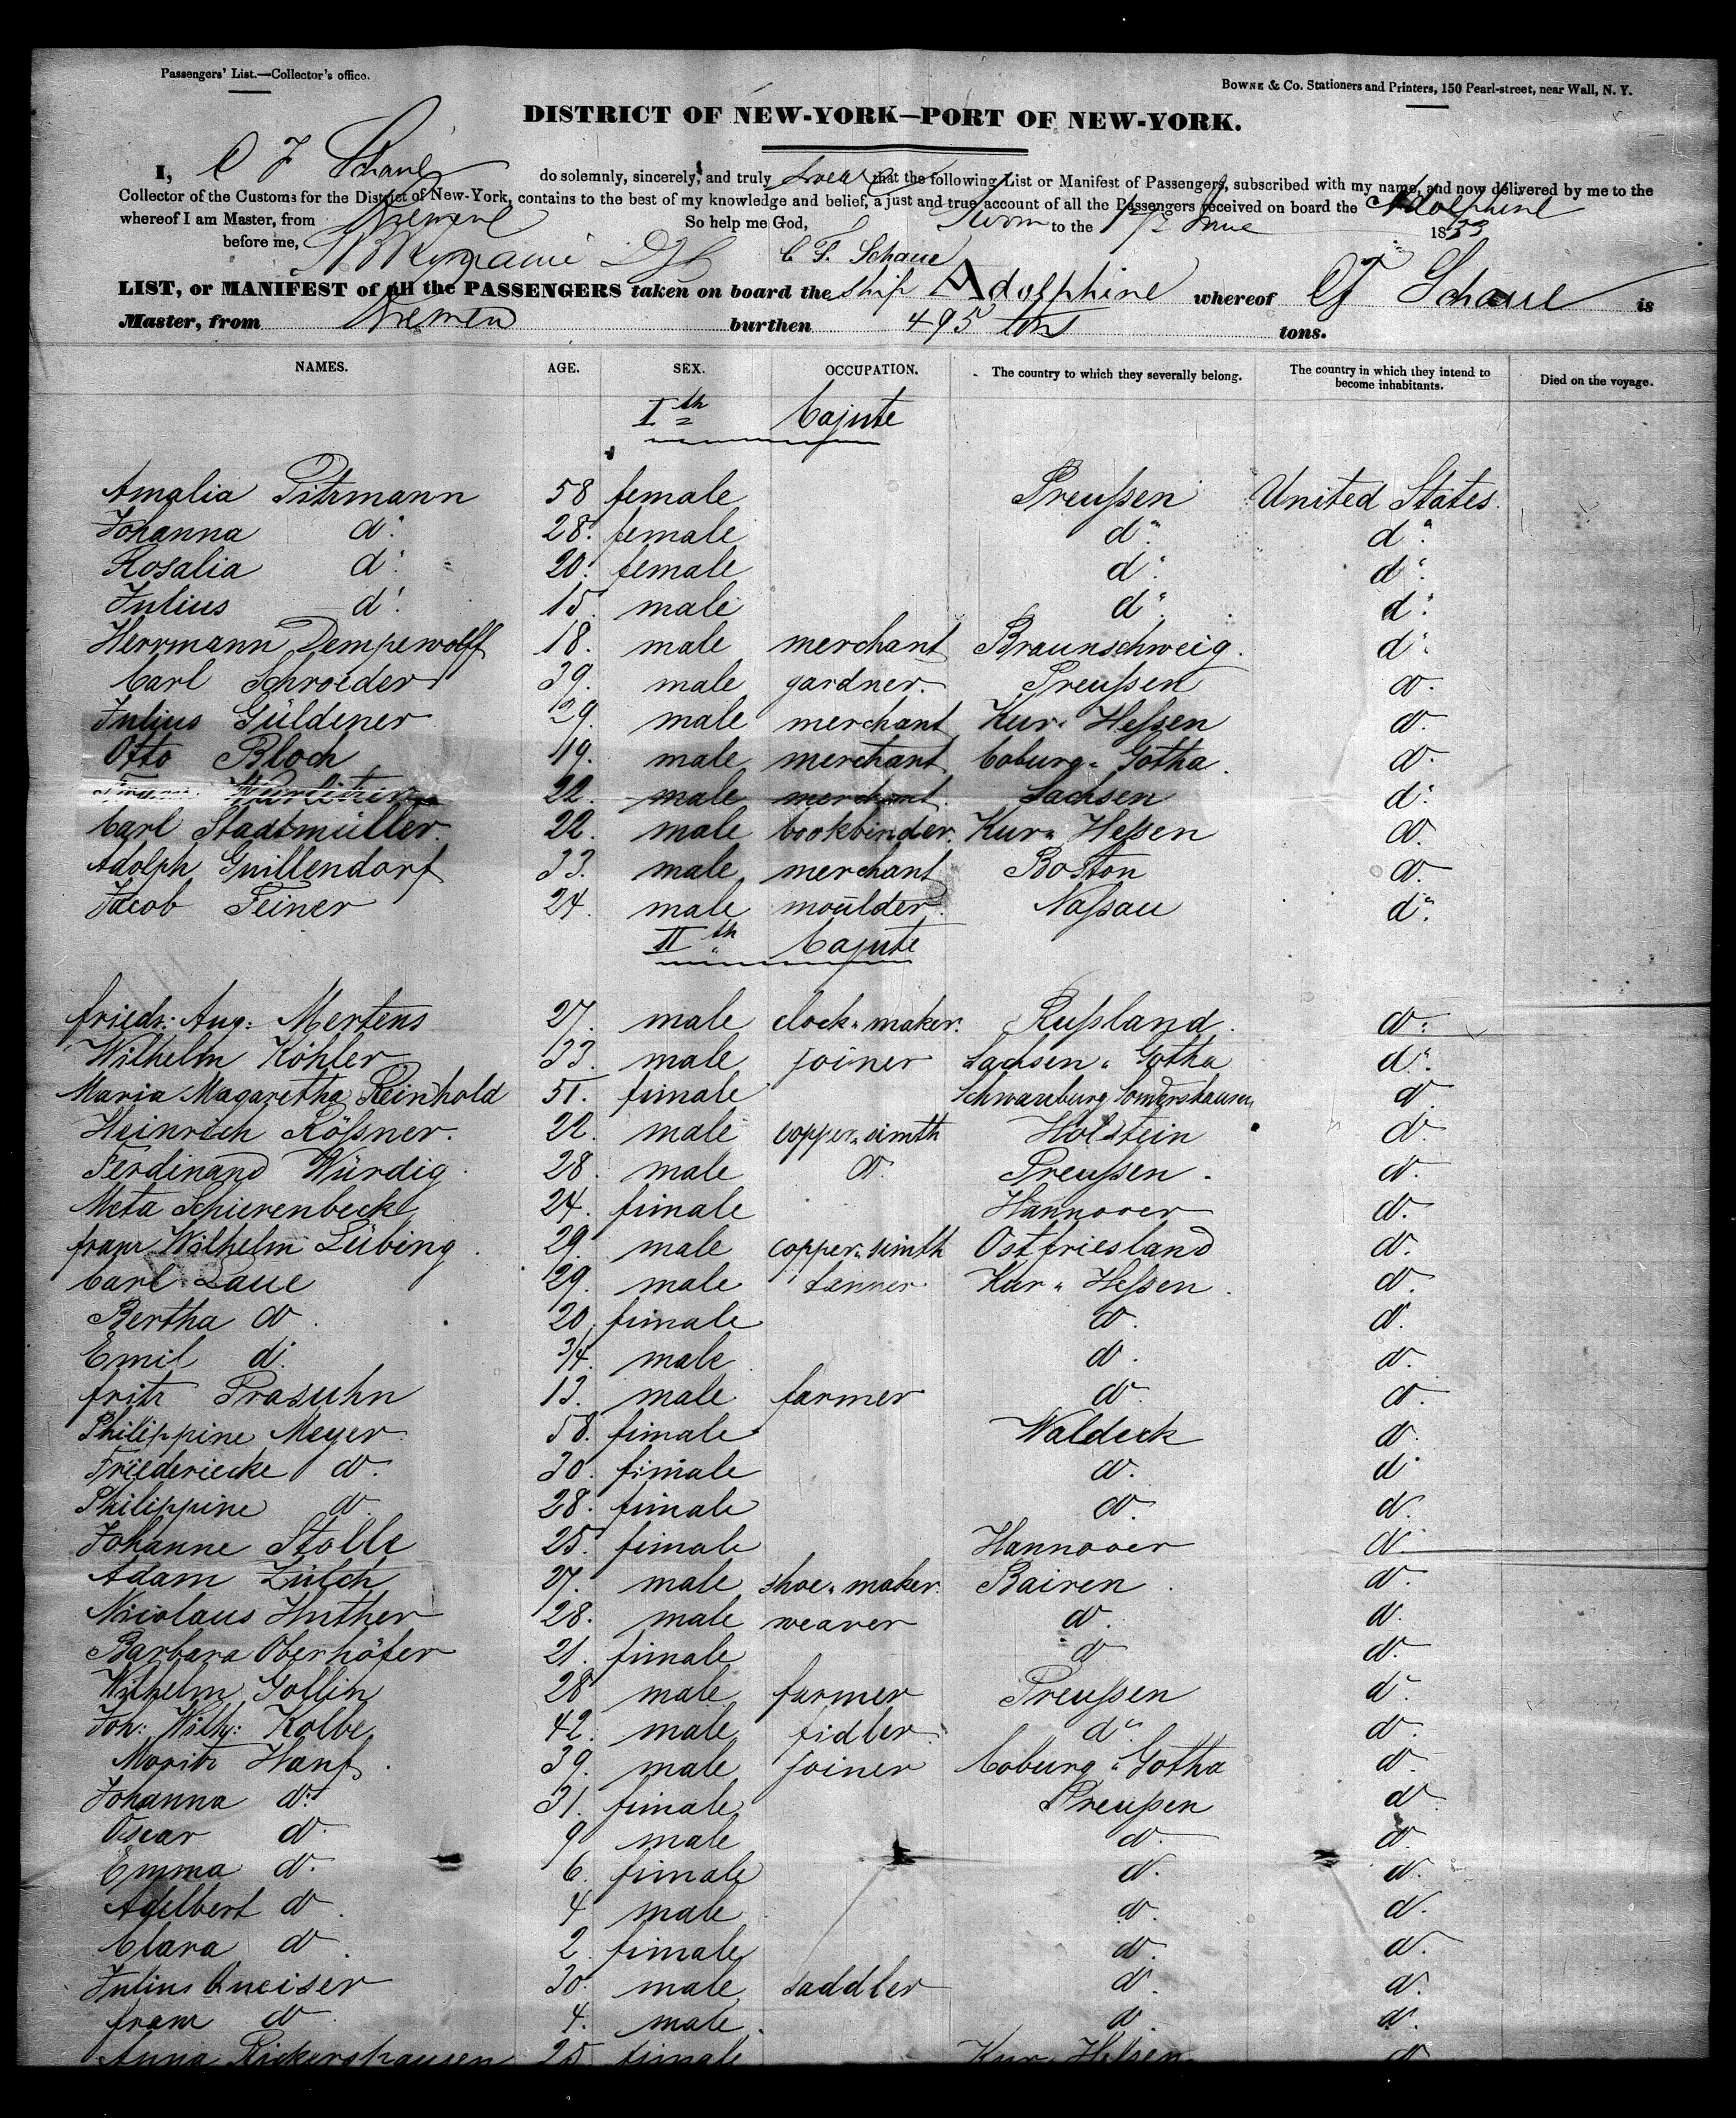 Passengers' List.—Collector's office.
Bowne & Co. Stationers and Printers, 150 Pearl-street, near Wall, N. Y.
DISTRICT OF NEW-YORK—PORT OF NEW-YORK.
I, C F Schaue do solemnly, sincerely, and truly swear that the following List or Manifest of Passengers, subscribed with my name, and now delivered by me to the
Collector of the Customs for the District of New-York, contains to the best of my knowledge and belief, a just and true account of all the Passengers received on board the Adolphine
whereof I am Master, from Bremen So help me God, Sworn to the 17 June 1853
before me, C. F. Schaue
LIST, or MANIFEST of all the PASSENGERS taken on board the ship Adolphine whereof CF Schaue is
Master, from Bremen burthen 495 tons tons.
NAMES. AGE. SEX. OCCUPATION. The country to which they severally belong. The country in which they intend to become inhabitants. Died on the voyage.
I th Cajute
Amalia Pitzmann 58 female Preußen United States.
Johanna d: 28. female d: d:
Rosalia d: 20. female d: d:
Julius d: 15. male d: d:
Herrmann Dempewolff 18. male merchant Braunschweig. d:
Carl Schroeder 39. male gardner. Preußen d.
Julius Güldener 29. male merchant Kur. Heßen d.
Otto Bloch 19. male merchant. Coburg. Gotha. d.
22. male merchant. Sachsen d:
Carl Stadtmüller. 22. male bookbinder. Kur. Heßen d.
Adolph Guillendorf 33. male merchant Boston d.
Jacob Feiner 24. male moulder. Naßau d:
II th Cajute
friedr: Aug: Mertens 27. male clock-maker. Rußland. d:
Wilhelm Köhler 33. male joiner Sachsen. Gotha d:
Maria Magaretha Reinhold 51. fimale Schwarzburg Sondershausen d
Heinrich Rößner. 22. male copper-simth Holstein d.
Ferdinand Würdig. 28. male d. Preußen. d.
Meta Schierenbeck 24. fimale Hannover d.
franz Wilhelm Lübing. 29. male copper-simth Ostfriesland d.
Carl Laue 29. male tanner Kur. Heßen. d.
Bertha d. 20. fimale d. d.
Emil d. 3/4. male. d. d.
fritz Prasuhn 13. male farmer d. d.
Philippine Meyer 58. fimale Waldeck d.
Friederiecke d. 30. fimale d. d.
Philippine d. 28. fimale d. d.
Johanne Stolle 25. fimale Hannover d.
Adam Zülch 27. male shoe-maker. Bairen. d.
Nicolaus Huther 28. male weaver d. d.
Barbara Oberhöfer 21. fimale d d.
Wilhelm Gollin 28 male farmer Preußen d.
Joh: Wilh: Kolbe 42. male fidler. d: d.
Moritz Hanf. 39. male joiner Coburg. Gotha d.
Johanna d: 31. fimale Preußen d
Oscar d. 9 male d. d.
Emma d. 6. fimale d. d.
Adelbert d. 4 male d. d.
Clara d. 2. fimale d. d.
Julius Queiser 30. male saddler d. d.
franz d 4. male. d. d.
Anna Rickershausen 25 fimale Kur. Heßen d